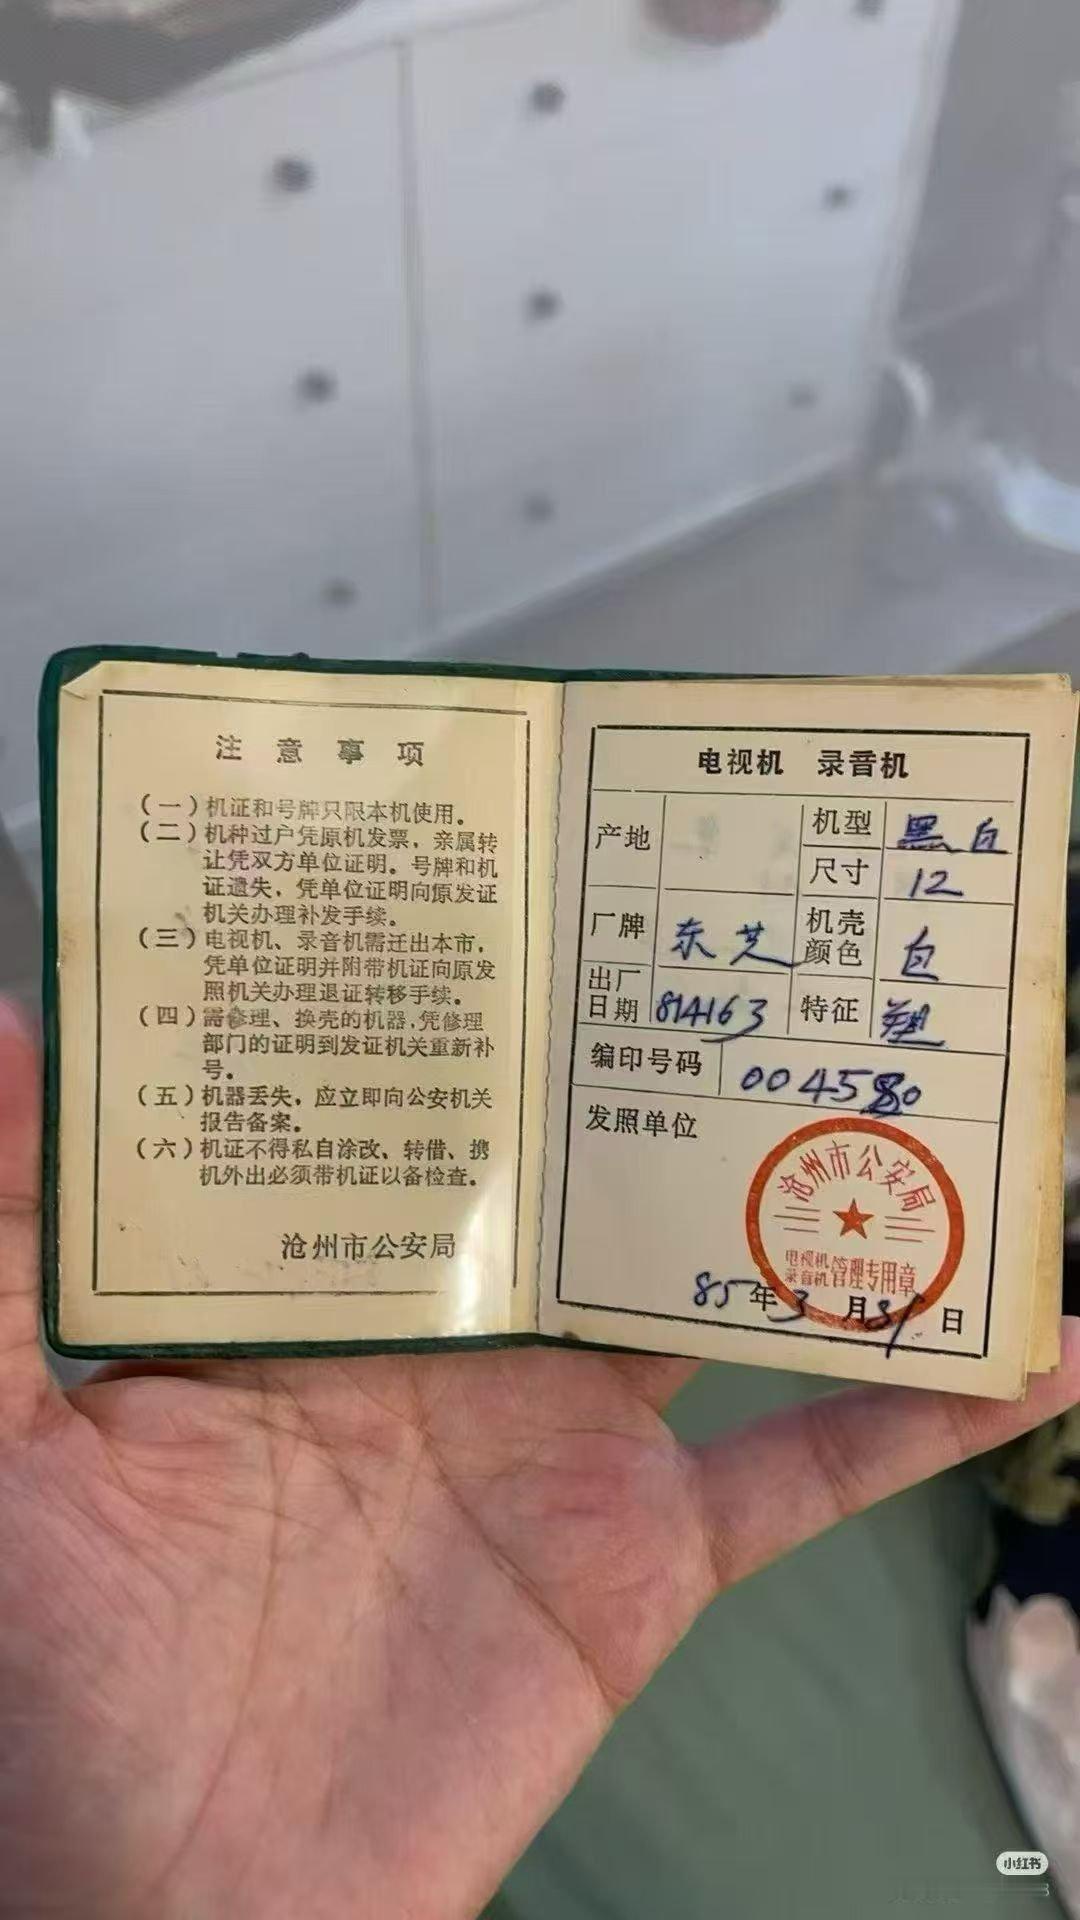 注意事项
（一）机证和号牌只限本机使用。
（二）机种过户凭原机发票，亲属转
让凭双方单位证明。号牌和机
证遗失，凭单位证明向原发证
机关办理补发手续。
（三）电视机、录音机需迁出本市，
凭单位证明并附带机证向原发
照机关办理退证转移手续。
（四）需修理、换壳的机器，凭修理
部门的证明到发证机关重新补
号。
（五）机器丢失，应立即向公安机关
报告备案。
（六）机证不得私自涂改、转借、携
机外出必须带机证以备检查。
沧州市公安局
电视机 录音机
产地
机型 黑白
尺寸 12
厂牌 东芝
机壳
颜色 白
出厂
日期 814163
特征
编印号码 004580
发照单位
沧州市公安局
电视机
录音机 管理专用章
85年3月31日
小红书